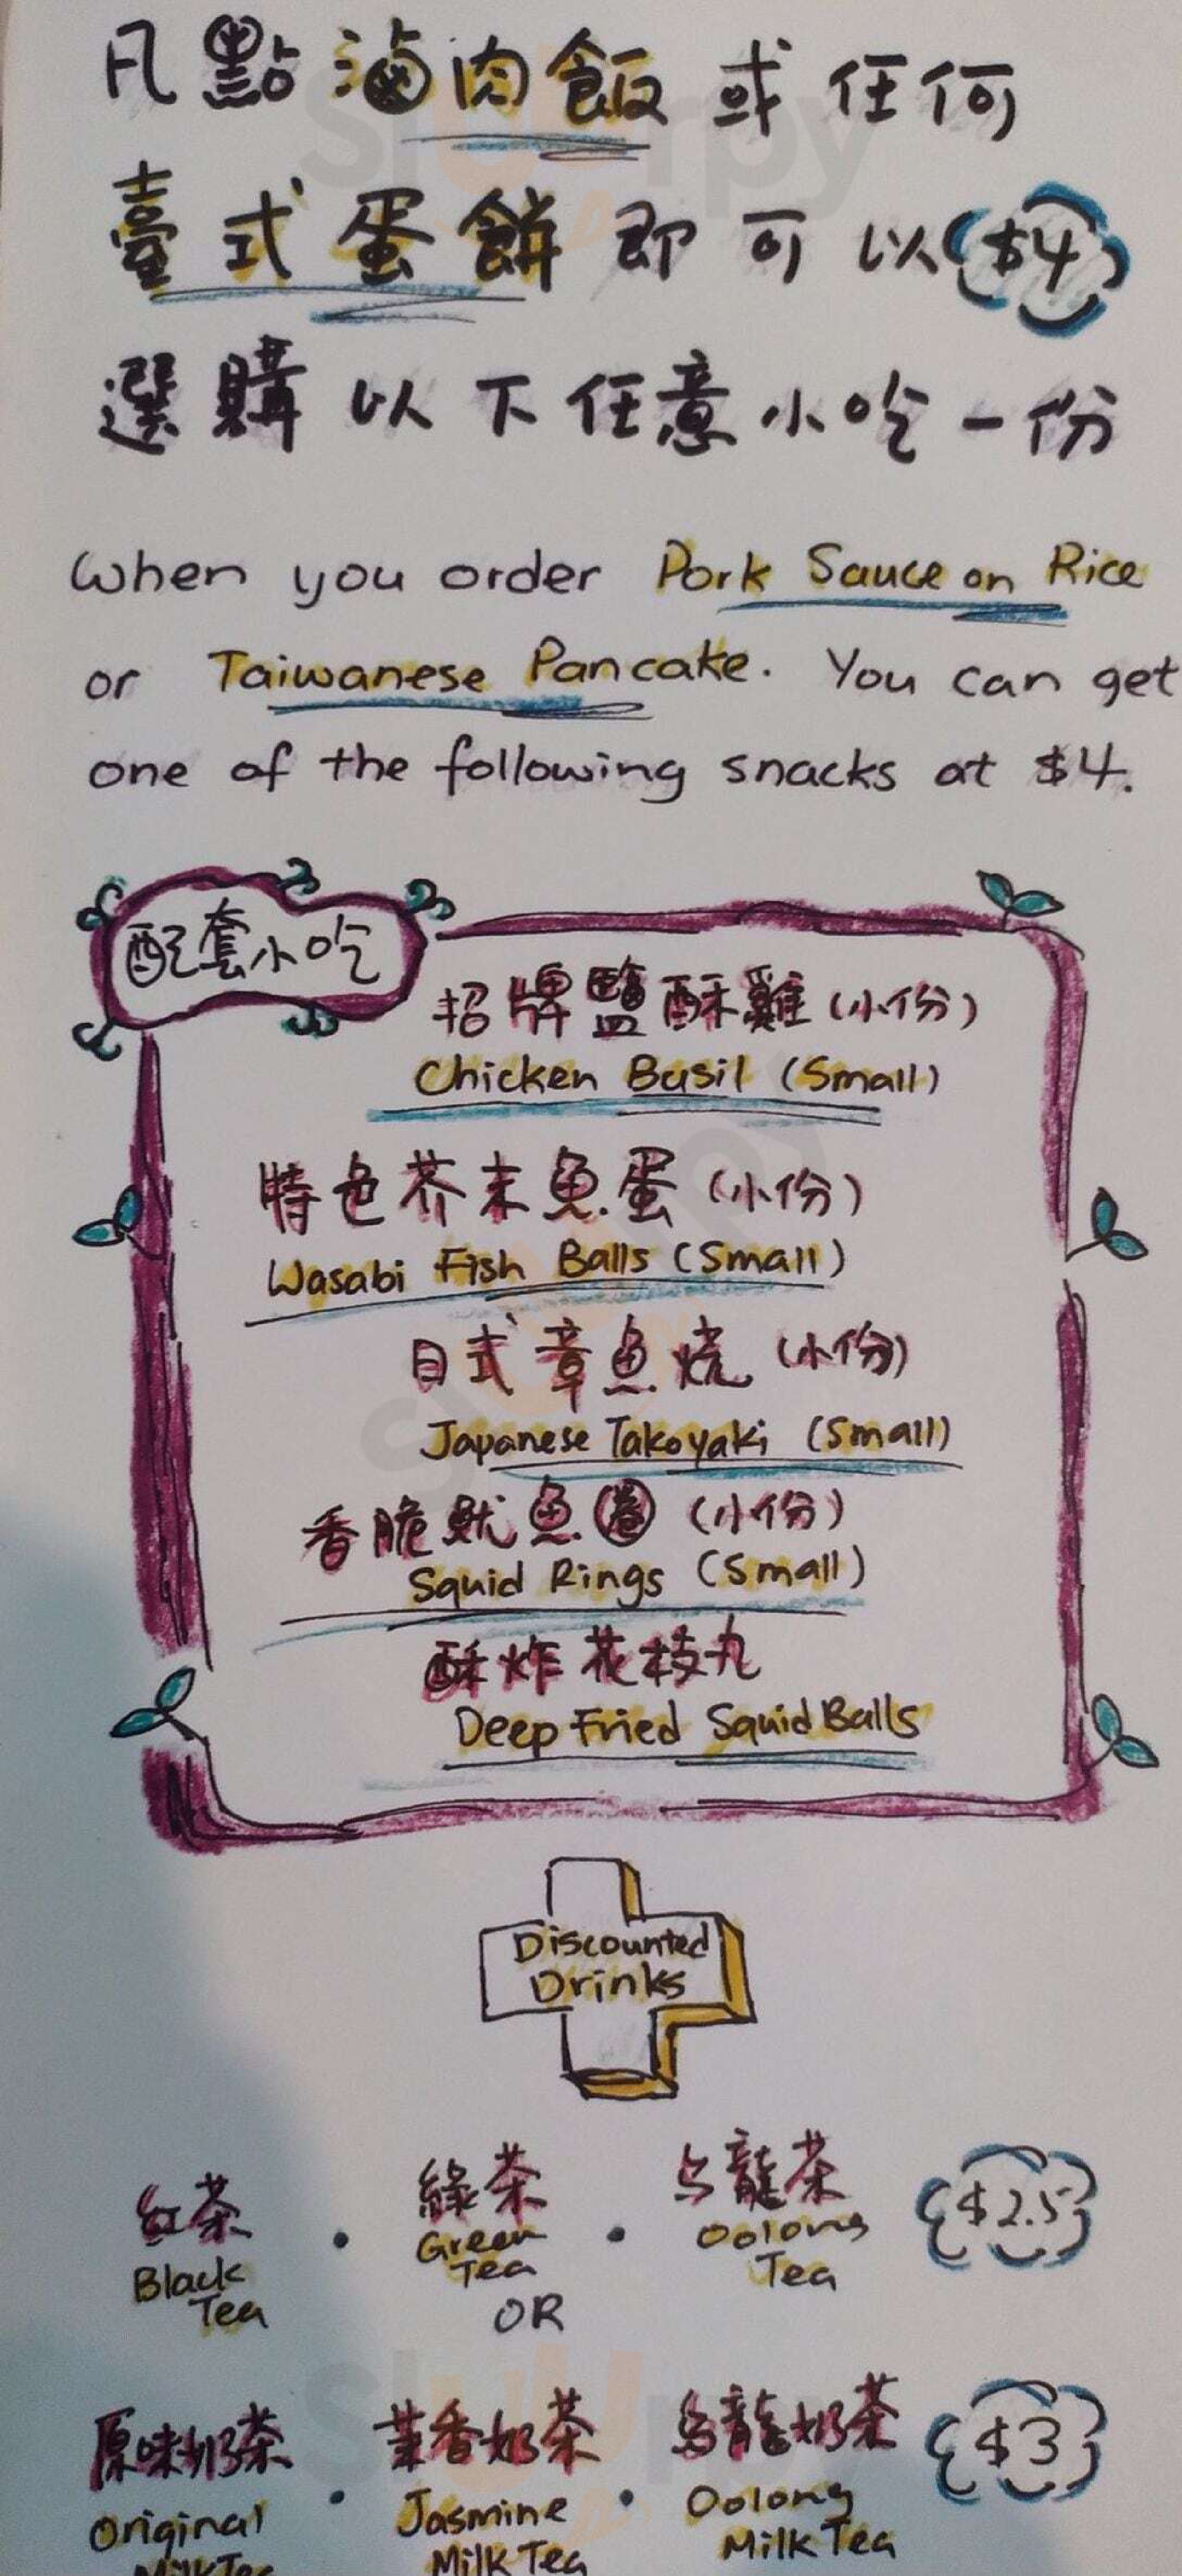 凡點滷肉飯或任何
臺式蛋餅即可以$4
選購以下任意小吃一份
When you order Pork Sauce on Rice
or Taiwanese Pancake. You can get
one of the following snacks at $4.
配套小吃
招牌鹽酥雞(小份)
Chicken Basil (Small)
特色芥末魚蛋(小份)
Wasabi Fish Balls (Small)
日式章魚燒(小份)
Japanese Takoyaki (Small)
香脆魷魚圈(小份)
Squid Rings (Small)
酥炸花枝丸
Deep Fried Squid Balls
Discounted
Drinks
紅茶 • 綠茶 • 烏龍茶 $2.5
Black Tea
Green Tea
Oolong Tea
OR
原味奶茶 • 茉香奶茶 • 烏龍奶茶 $3
Original Milk Tea
Jasmine Milk Tea
Oolong Milk Tea
slurpy
slurpy
slurpy